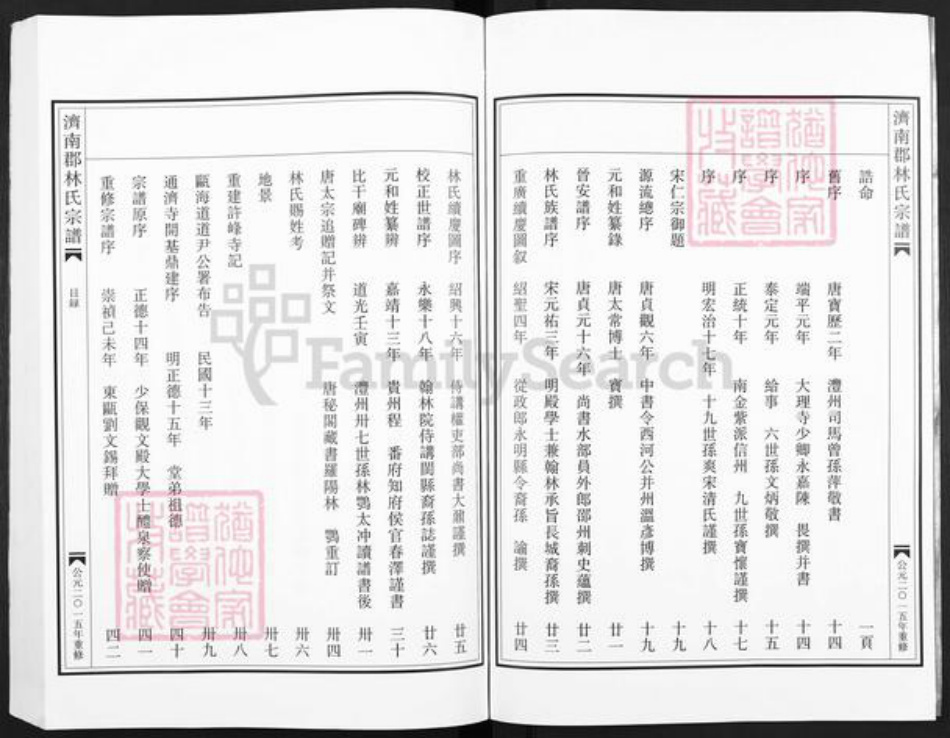 濟南郡林氏宗譜
公元二〇一五年重修
誥命 一頁
舊序 唐寶歷二年 灃州司馬曾孫萍敬書 十四
序 端平元年 大理寺少卿永嘉陳 畏撰并書 十四
序 泰定元年 給事 六世孫文炳敬撰 十五
序 正統十年 南金紫派信州 九世孫寶懷謹撰 十七
序 明宏治十七年 十九世孫爽宋清氏謹撰 十八
宋仁宗御題 十九
源流總序 唐貞觀六年 中書令西河公并州溫彥博撰 十九
元和姓纂錄 唐太常博士 寶撰 廿一
晉安譜序 唐貞元十六年 尚書水部員外郎邵州刺史蘊撰 廿二
林氏族譜序 宋元祐三年 明殿學士兼翰林承旨長城裔孫撰 廿三
重廣續慶圖叙 紹聖四年 從政郎永明縣令裔孫 諭撰 廿四
林氏續慶圖序 紹興十六年 侍講權吏部尚書大鼐謹撰 廿五
校正世譜序 永樂十八年 翰林院侍講閩縣裔孫誌謹撰 廿六
元和姓纂辨 嘉靖十三年 貴州程 番府知府侯官春澤謹書 三十
比干廟碑辨 道光壬寅 灃州卅七世孫林鶚太冲讀譜書後 卅一
唐太宗追贈記并祭文 唐秘閣藏書羅陽林 鶚重訂 卅四
林氏賜姓考 卅六
地景 卅七
重建許峰寺記 卅八
甌海道道尹公署布告 民國十三年 卅九
通濟寺開基鼎建序 明正德十五年 堂弟祖德 四十
宗譜原序 正德十四年 少保觀文殿大學士醴泉察使贈 四一
重修宗譜序 崇禎己未年 東甌劉文錫拜贈 四二
濟南郡林氏宗譜
目錄
公元二〇一五年重修
FamilySearch